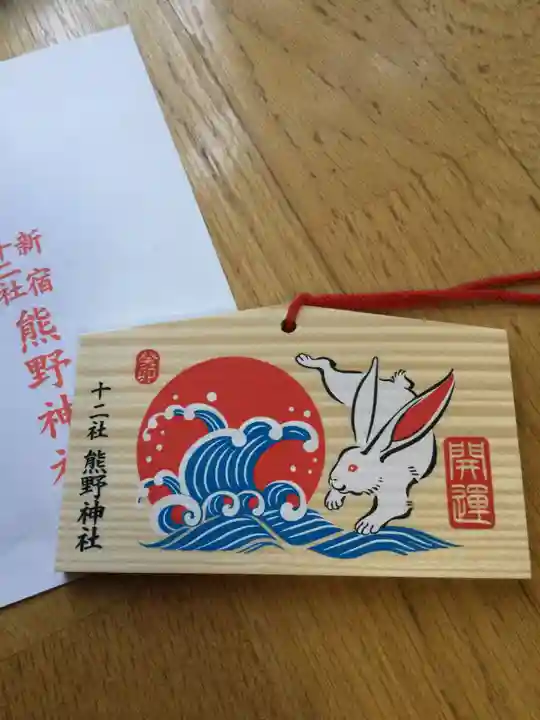 新宿
十二社
熊野神社
癸卯
十二社 熊野神社
開運